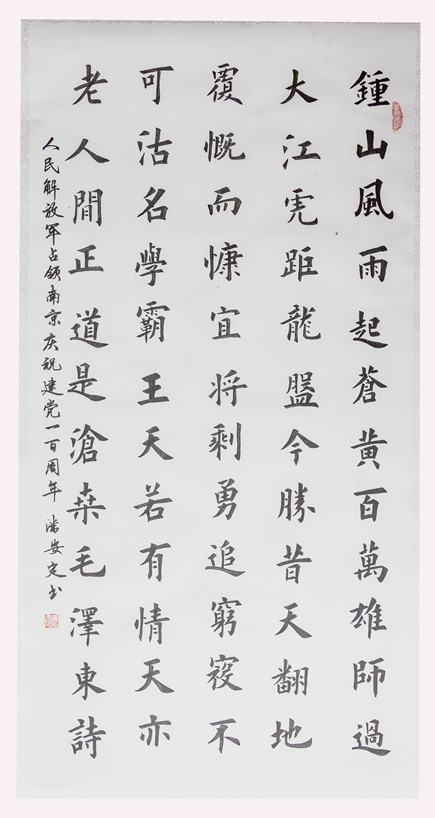 鍾山風雨起蒼黄百萬雄師過
大江虎距龍盤今勝昔天翻地
覆慨而慷宜将剩勇追窮寇不
可沽名學霸王天若有情天亦
老人間正道是滄桒毛澤東詩
人民解放军占领南京庆祝建党一百周年 潘安定书